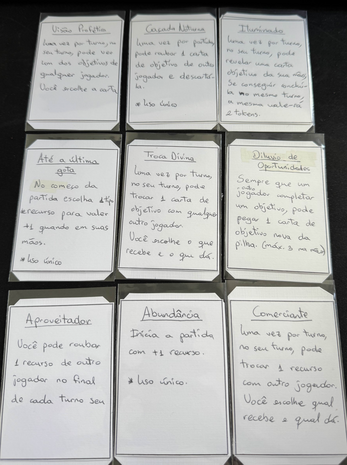 Visão Profética
Uma vez por turno, no
seu turno, pode ver
um dos objetivos de
qualquer jogador.
Você escolhe a carta
Caçada Noturna
Uma vez por partida,
pode roubar 1 carta
de objetivo de outro
jogador e descartá-
la.
* Uso único
Iluminado
Uma vez por turno,
no seu turno, pode
revelar uma carta
objetivo da sua mão.
Se conseguir
no mesmo turno,
a mesma
2 tokens.
Até a última
gota
No começo da
partida escolha 1 tipo
recurso para valer
+1 quando em suas
mãos.
* Uso único
Troca Divina
Uma vez por turno,
no seu turno, pode
trocar 1 carta de
objetivo com qualquer
outro jogador.
Você escolhe o que
recebe e o que dá.
Dilúvio de
Oportunidades
Sempre que um
outro
jogador completar
um objetivo, pode
pegar 1 carta de
objetivo nova da
pilha. (máx. 3 na mão)
Aproveitador
Você pode roubar
1 recurso de outro
jogador no final
de cada turno seu
Abundância
Inicia a partida
com +1 recurso.
* Uso único.
Comerciante
Uma vez por turno,
no seu turno, pode
trocar 1 recurso
com outro jogador.
Você escolhe qual
recebe e qual dá.